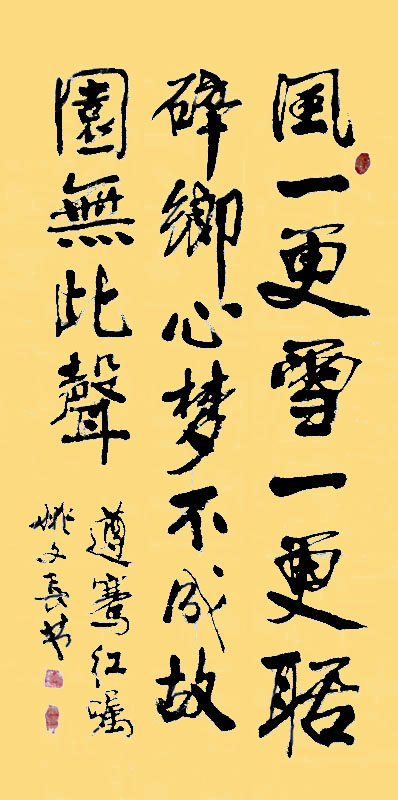 風一更雪一更聒
碎鄉心梦不成故
園無此聲
遵骞红嘱
姚文長书